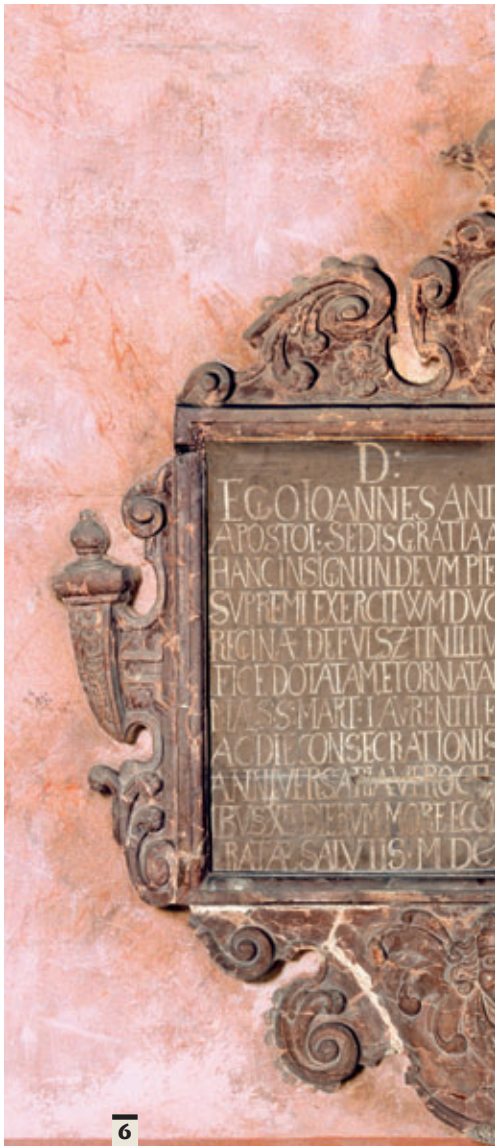 D:
EGO IOANNES AND
APOSTOL: SEDIS GRATIA A
HANC INSIGNI IN DEVM PIE
SVPREMI EXERCITVVM DVC
REGINÆ DE
FICE DOTATAM ET ORNATA
S·S·MART: LAVRENTII E
AC DIE CONSECRATIONIS
ANNIVERSARIA
DIERVM MORE ECC
RATÆ SALVTIS· M DC
6